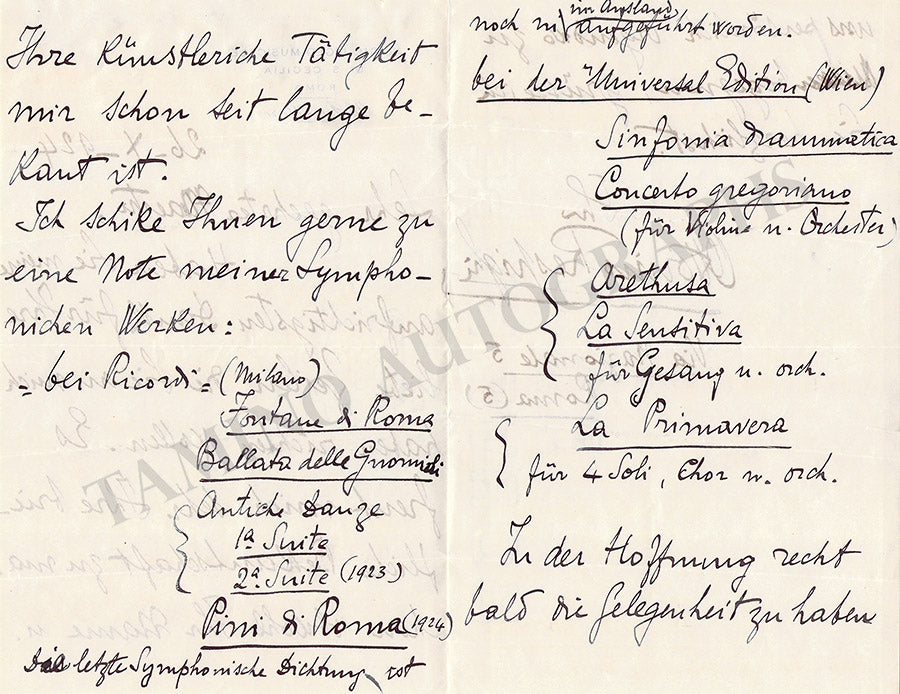 Ihre Künstleriche Tätigkeit
mir schon seit lange be-
kant ist.
Ich schike Ihnen gerne zu
eine Note meiner Sympho-
nichen Werken:
= bei Ricordi = (Milano)
Fontane di Roma
Ballata delle Gnomidi
Antiche Danze
1ª Suite
2ª Suite (1923)
Pini di Roma (1924)
letzte Symphonische Dichtung, ist
im Ausland
noch nie aufgeführt worden.
bei der "Universal Edition (Wien)
Sinfonia drammatica
Concerto gregoriano
(für Violine u. Orchester)
Arethusa
La Sensitiva
für Gesang u. orch.
La Primavera
für 4 Soli, Chor u. orch.
In der Hoffnung recht
bald die Gelegenheit zu haben
TAMINO AUTOGRAPHS